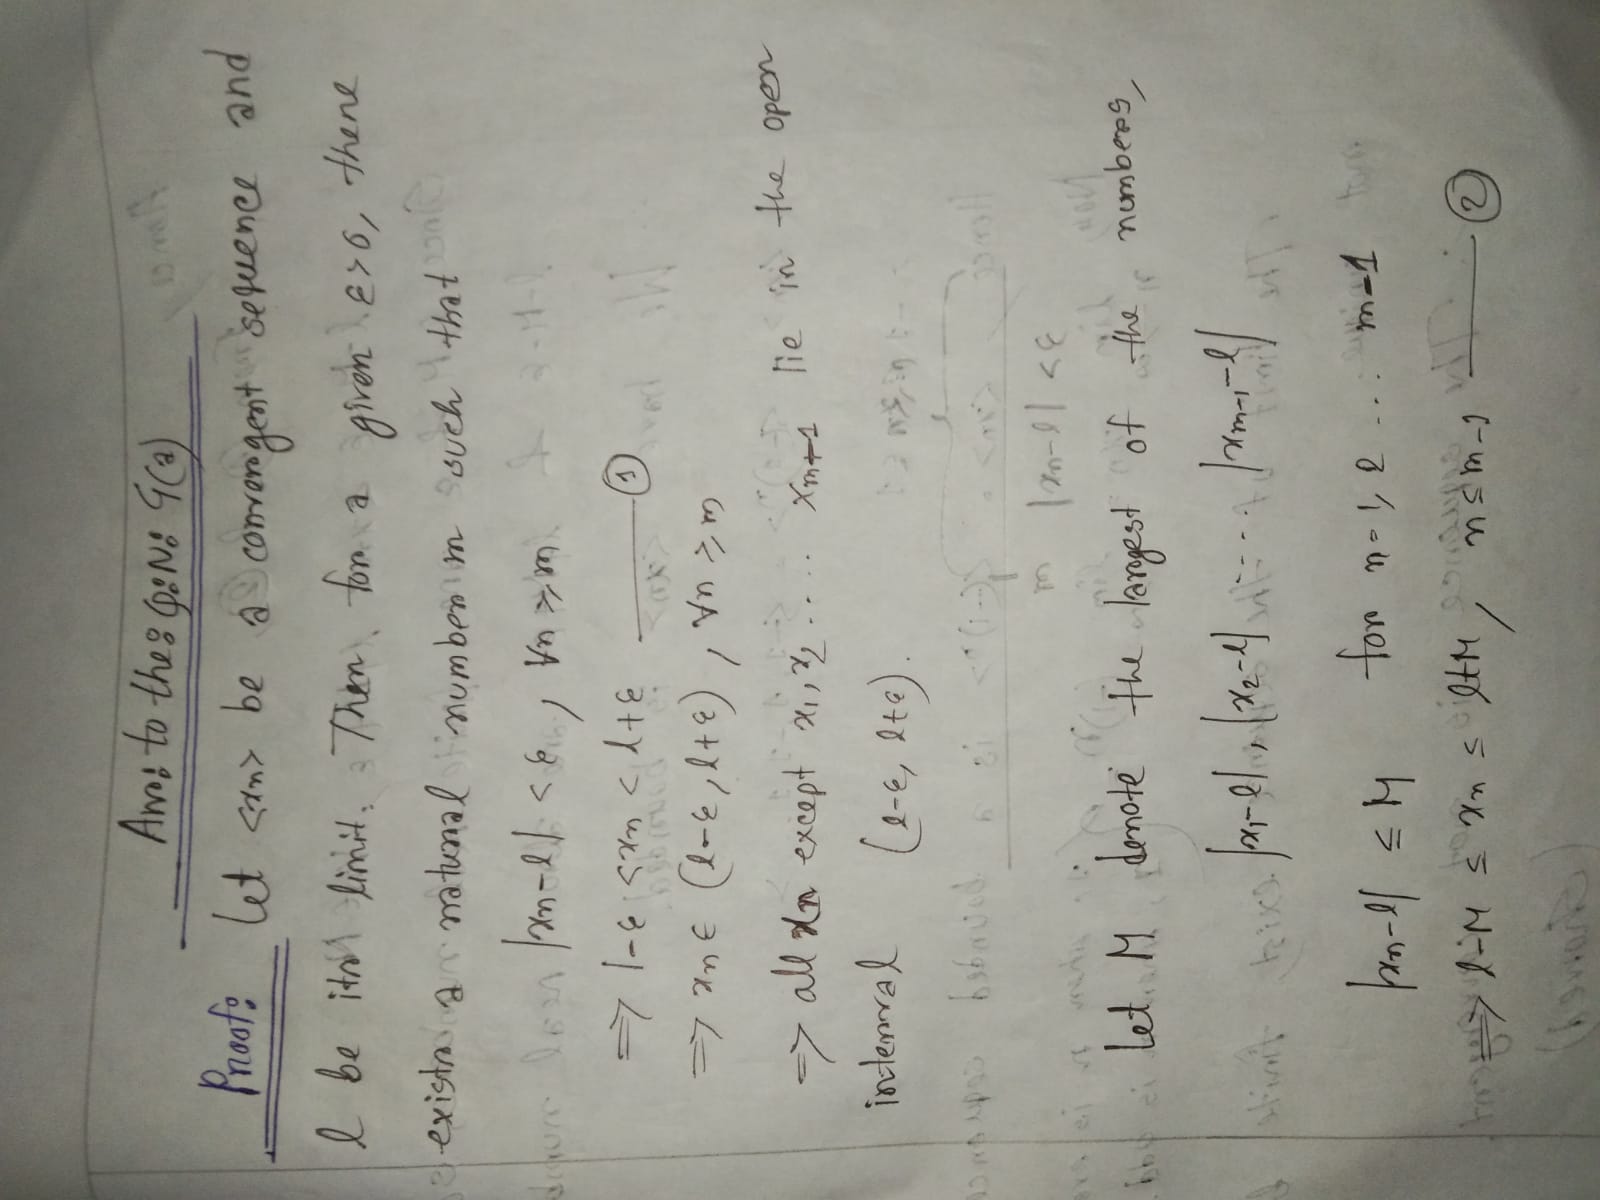 Ans: to the: Q: N: 9(a)
Proof: Let <xn> be a convergent sequence and
l be its limit. Then for a given ε>0, there
exists a natural number m such that
|xn-l| < ε, ∀n ≥ m
⇒ l-ε < xn < l+ε ——— ①
⇒ xn ∈ (l-ε, l+ε), ∀n ≥ m
⇒ all xn except x₁, x₂.... xm+1 lie in the open
interval (l-ε, l+ε).
Let M denote the largest of the numbers,
|x₁-l|, |x₂-l| .... |xm-1-l|
|xn-l| ≤ M for n=1, 2 ... m-1
⇒ l-M ≤ xn ≤ l+M, n ≤ m-1 ——— ②